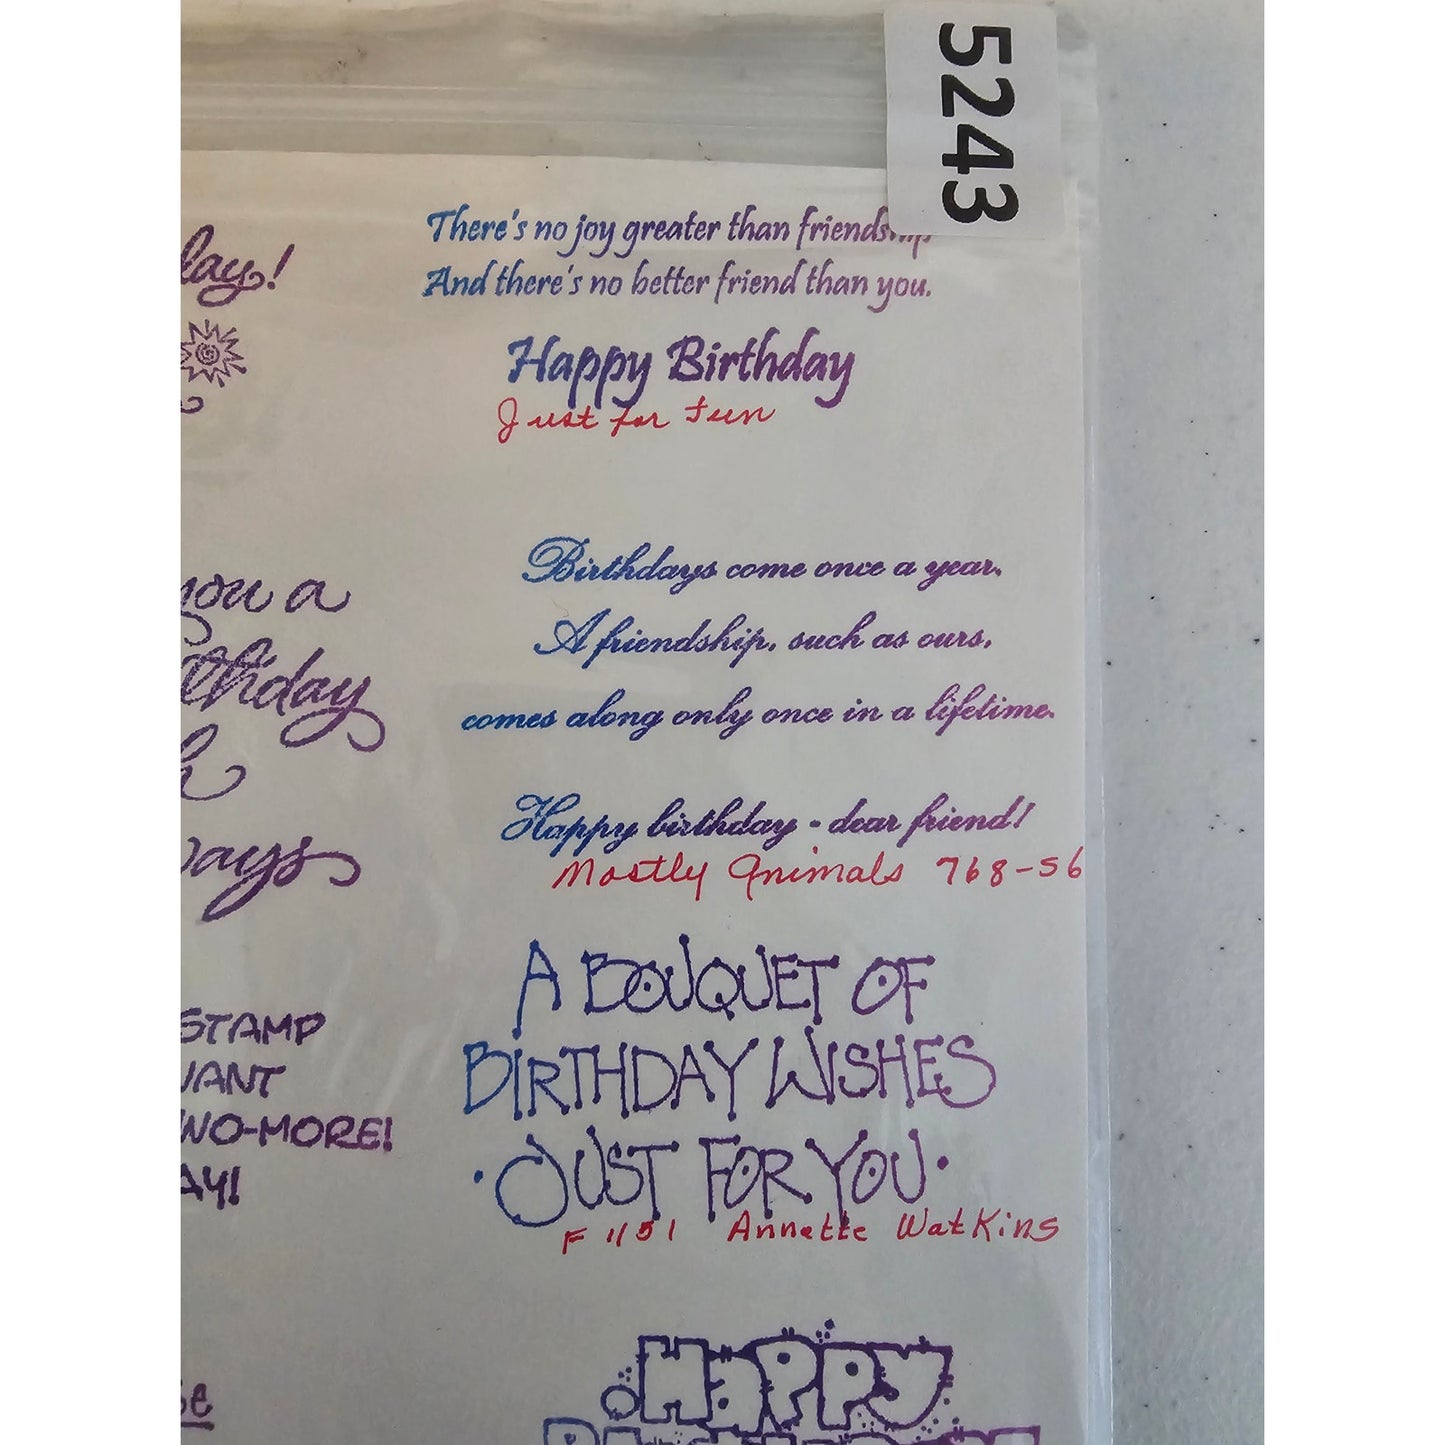 5243
There's no joy greater than friendship
And there's no better friend than you.
Happy Birthday
Just for Fun
Birthdays come once a year.
A friendship, such as ours,
comes along only once in a lifetime.
Happy birthday - dear friend!
Mostly Animals 768-56
A BOUQUET OF
BIRTHDAY WISHES
·JUST FOR YOU·
F 1151 Annette Watkins
HAPPY
lay!
you a
thday
h
ways
STAMP
WANT
WO-MORE!
AY!